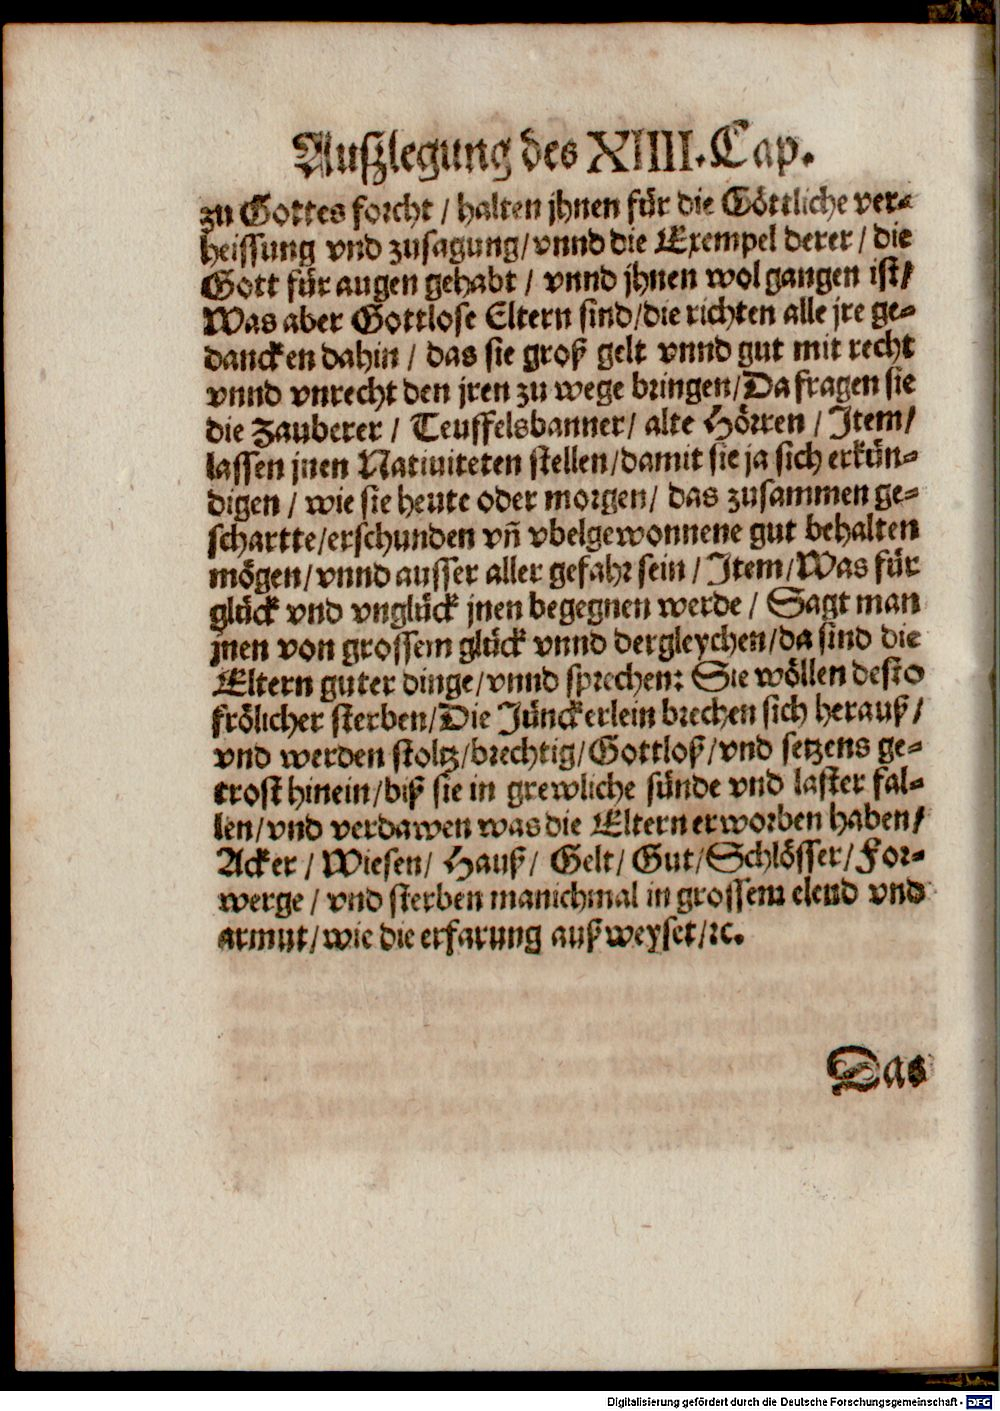 Auſzlegung des XIIII. Cap.
zu Gottes forcht / halten jhnen für die Göttliche ver-
heissung vnd zusagung/ vnnd die Exempel derer / die
Gott für augen gehabt / vnnd jhnen wol gangen ist/
Was aber Gottlose Eltern sind/ die richten alle jre ge-
dancken dahin / das sie groß gelt vnnd gut mit recht
vnnd vnrecht den jren zu wege bringen/ Da fragen sie
die Zauberer / Teuffelsbanner/ alte Hörren / Item/
lassen jnen Natiuiteten stellen/ damit sie ja sich erkün-
digen / wie sie heute oder morgen/ das zusammen ge-
schartte/ erschunden vn̄ vbelgewonnene gut behalten
mögen/ vnnd ausser aller gefahr sein / Item/ Was für
glück vnd vnglück jnen begegnen werde / Sagt man
jnen von grossem glück vnnd dergleychen/ da sind die
Eltern guter dinge/ vnnd sprechen: Sie wöllen desto
frölicher sterben/ Die Jünckerlein brechen sich herauß/
vnd werden stoltz/ brechtig/ Gottloß/ vnd setzens ge-
trost hinein/ biß sie in grewliche sünde vnd laster fal-
len/ vnd verdawen was die Eltern erworben haben/
Acker / Wiesen/ Hauß/ Gelt/ Gut/ Schlösser/ For-
werge / vnd sterben manichmal in grossem elend vnd
armut/ wie die erfarung außweyset/ ꝛc.
Das
Digitalisierung gefördert durch die Deutsche Forschungsgemeinschaft - DFG